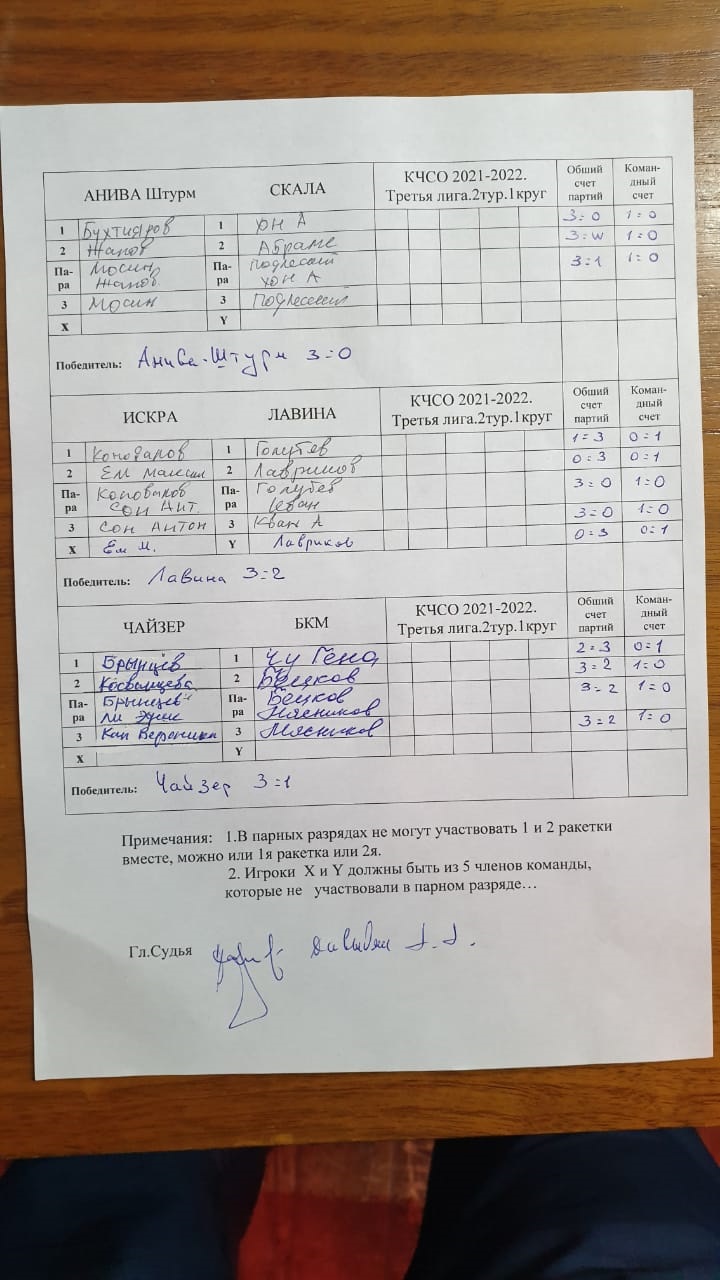 АНИВА Штурм СКАЛА КЧСО 2021-2022. Третья лига.2тур.1круг Обший счет партий Коман-дный счет
1 Бухтияров 1 Юн А 3=0 1=0
2 Жанов 2 Абраме 3=W 1=0
Па-ра Мосин Па-ра 3=1 1=0
Жанов Хон А
3 Мосин 3
X Y
Победитель: Анива-Штурм 3=0
ИСКРА ЛАВИНА КЧСО 2021-2022. Третья лига.2тур.1круг Обший счет партий Коман-дный счет
1 1 Голубев 1=3 0=1
2 Ем Максим 2 Лавриков 0=3 0=1
Па-ра Па-ра Голубев 3=0 1=0
Сон Ант. Кван
3 Сон Антон 3 Кван А 3=0 1=0
X Ем М. Y Лавриков 0=3 0=1
Победитель: Лавина 3=2
ЧАЙЗЕР БКМ КЧСО 2021-2022. Третья лига.2тур.1круг Обший счет партий Коман-дный счет
1 Брынцев 1 Чу Гена 2=3 0=1
2 2 Бецков 3=2 1=0
Па-ра Брынцев Па-ра Бецков 3=2 1=0
Ли Мясников
3 Кан Вероника 3 Мясников 3=2 1=0
X Y
Победитель: Чайзер 3=1
Примечания: 1.В парных разрядах не могут участвовать 1 и 2 ракетки
вместе, можно или 1я ракетка или 2я.
2. Игроки X и Y должны быть из 5 членов команды,
которые не участвовали в парном разряде…
Гл.Судья